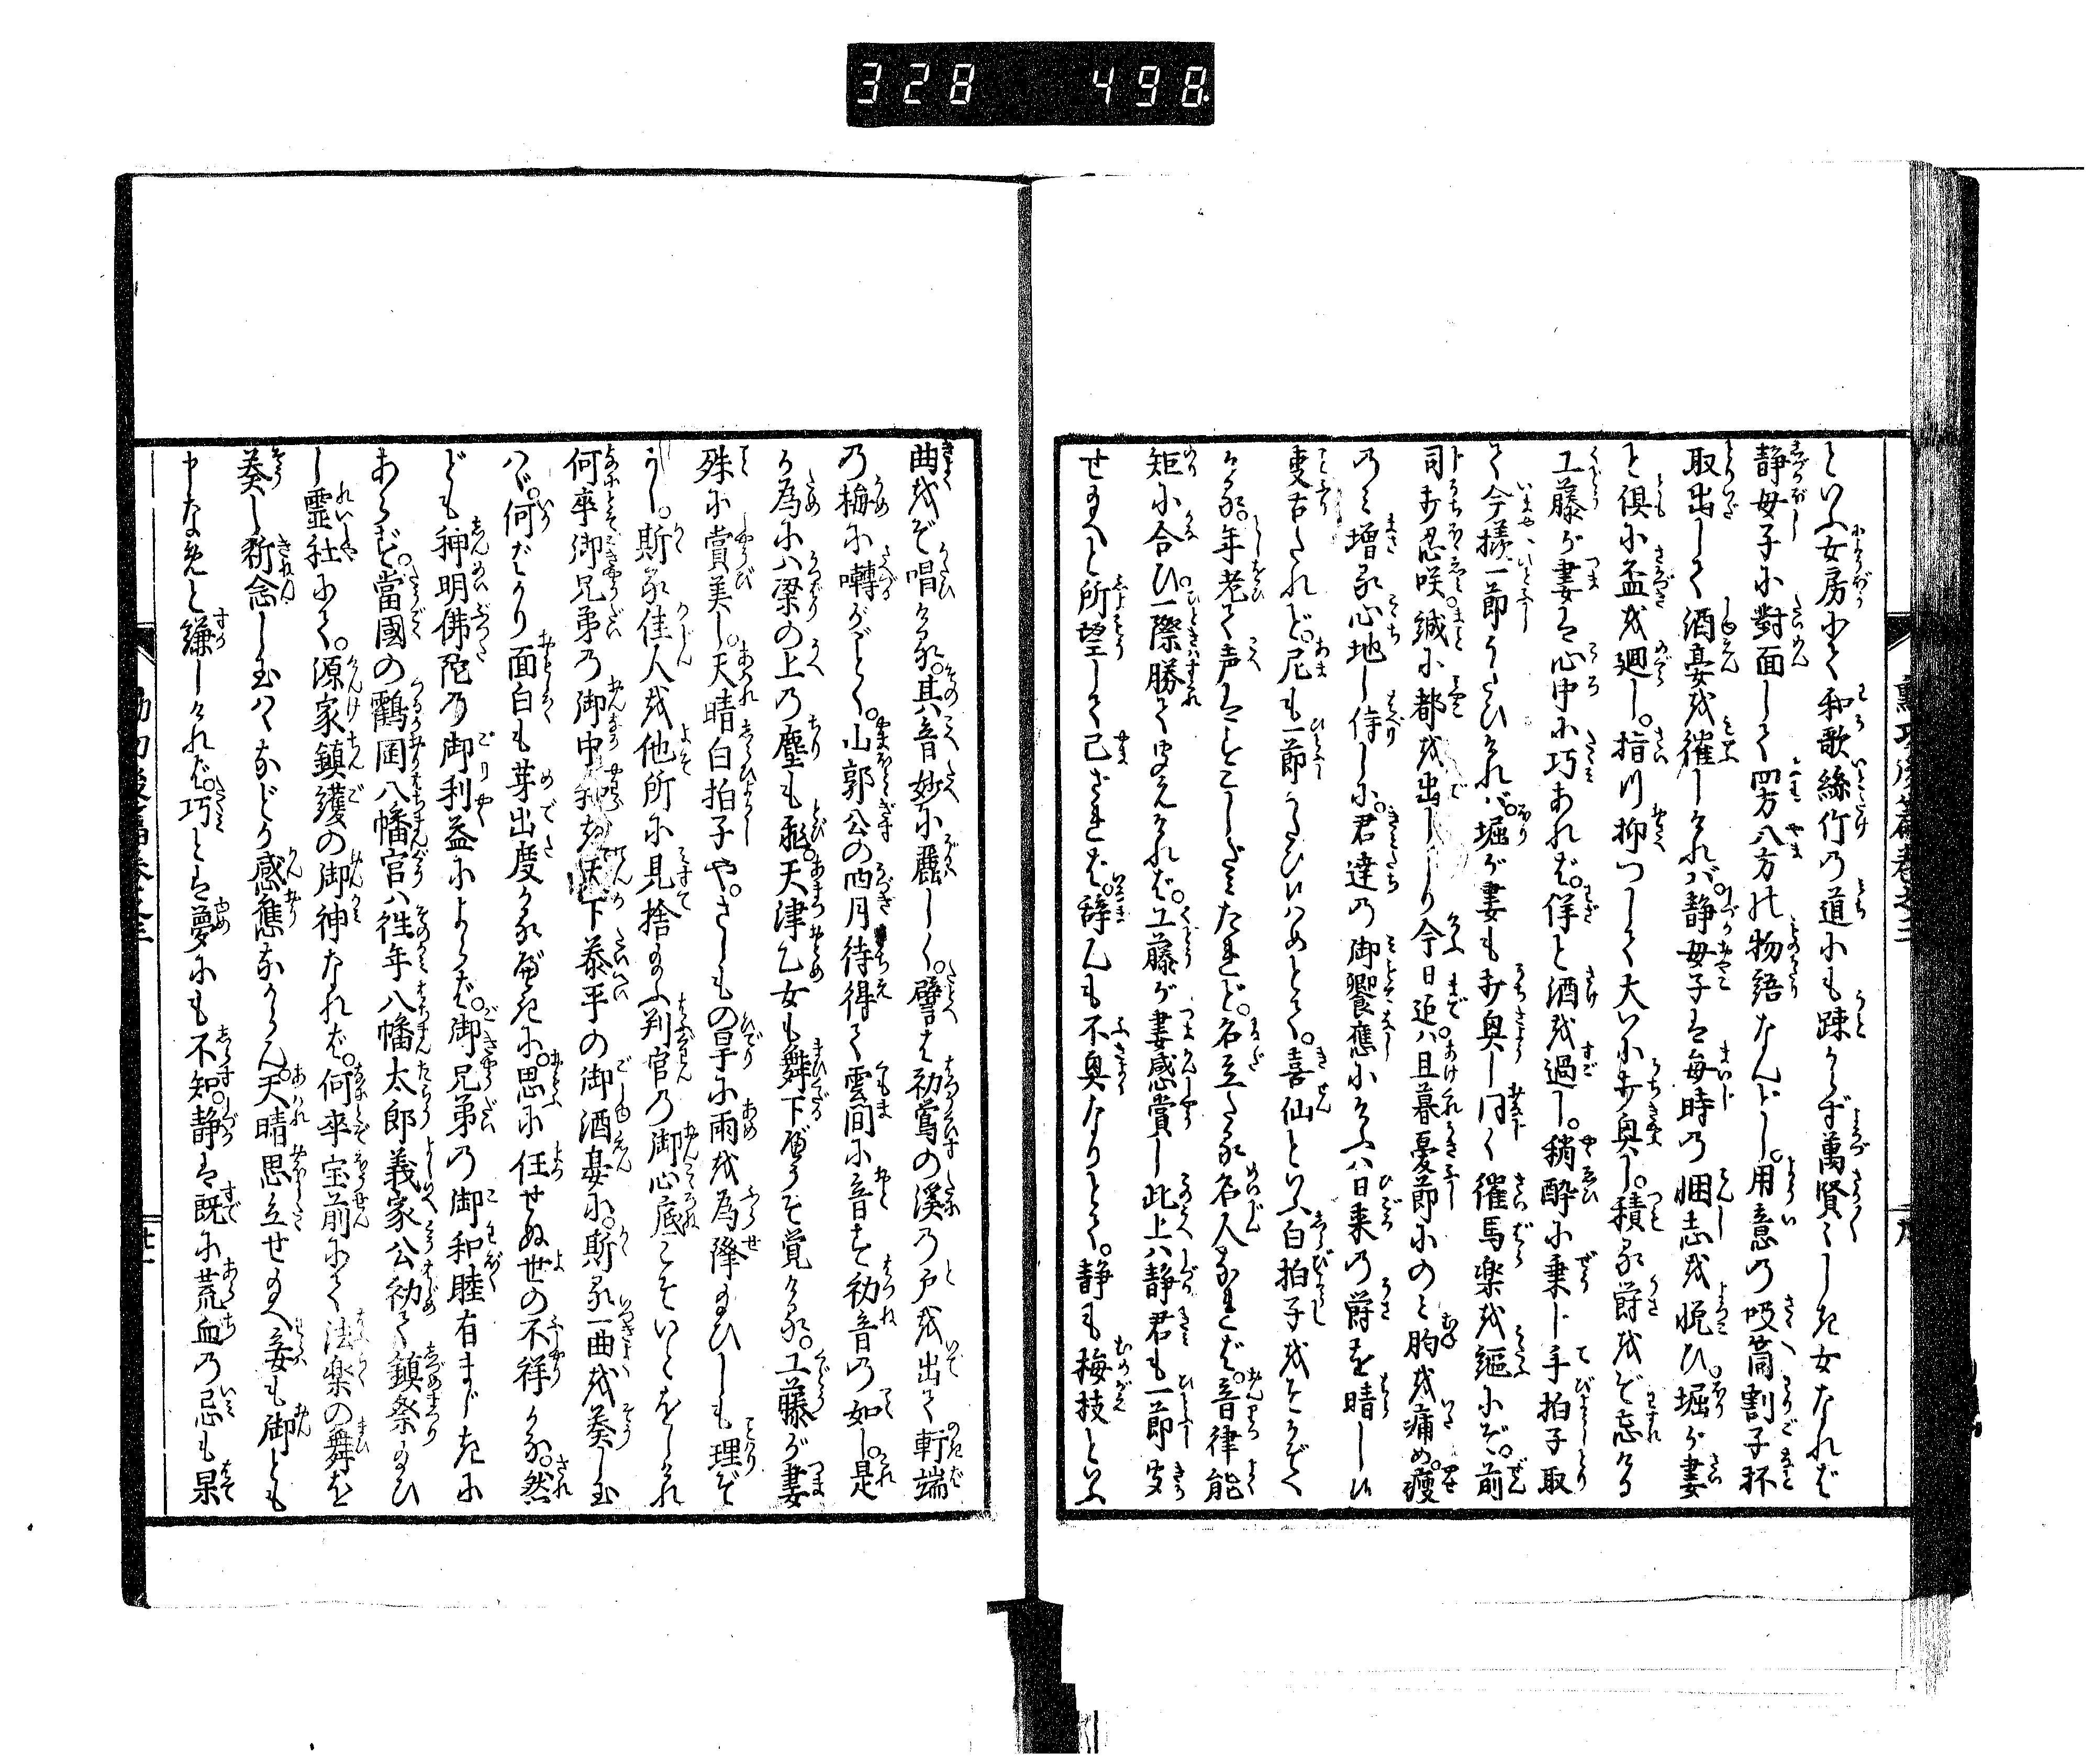 328 498
といふ女房にて和歌絲竹の道にも疎からず萬賢々しき女なれば
静母子に對面して四方八方の物語なんどし。用意の吸筒割子杯
取出して酒宴を催しければ。静母子は毎時の悃志を悦び。堀が妻
と倶に盃を廻し。指つ抑つして大いに打興し。積る欝をぞ忘ける
工藤が妻は心中に巧あれば。佯と酒を過し。稍酔に乗じ手拍子取
て今様一節うたひければ。堀が妻も打興し同く催馬楽を謳にぞ。前
司打忍咲誠に都を出しより今日迄は旦暮憂節にのみ胸を痛め。痩
のみ増る心地し侍しに。君達の御饗應にけふは日来の欝を晴し
更古たれど。尼も一節うたひ申めとて。喜仙といふ白拍子をそかぞへ
ける。年老て声はすこしだみたれど。名立たる名人なれば。音律能
矩に合ひ。一際勝て聞えければ。工藤が妻感賞し此上は静君も一節聞
せ玉へと所望して已ざれば。辞んも不興なりとて。静も梅枝といふ
曲をぞ唱ける。其音妙に麗しく。譬ば初鴬の渓の戸を出て軒端
の梅に囀がごとく。山郭公の四月待得て雲間に音す初音の如し。是
が為には梁の上の塵も飛。天津乙女も舞下るべうぞ覚ける。工藤が妻
殊に賞美し。天晴白拍子や。さしもの旱に雨を為降玉ひしも理ぞ
かし。斯る佳人を他所に見捨玉ふ判官の御心底こそいとをしけれ
何卒御兄弟の御中和ぎ天下泰平の御酒宴に。斯る一曲を奏し玉
はゞ。何ばかり面白も芽出度かるべきに。思に任せぬ世の不祥かな。然
ども神明佛陀の御利益によらば。御兄弟の御和睦有まじきに
あらず。當國の鶴岡八幡宮は徃年八幡太郎義家公初て鎮祭玉ひ
し霊社にて。源家鎮護の御神なれば。何卒宝前にて法楽の舞を
奏し祈念し玉はゞなどか感應なからん。天晴思立せ玉へ妾も御とも
申なんと謙しければ。巧とは夢にも不知。静は既に荒血の忌も果